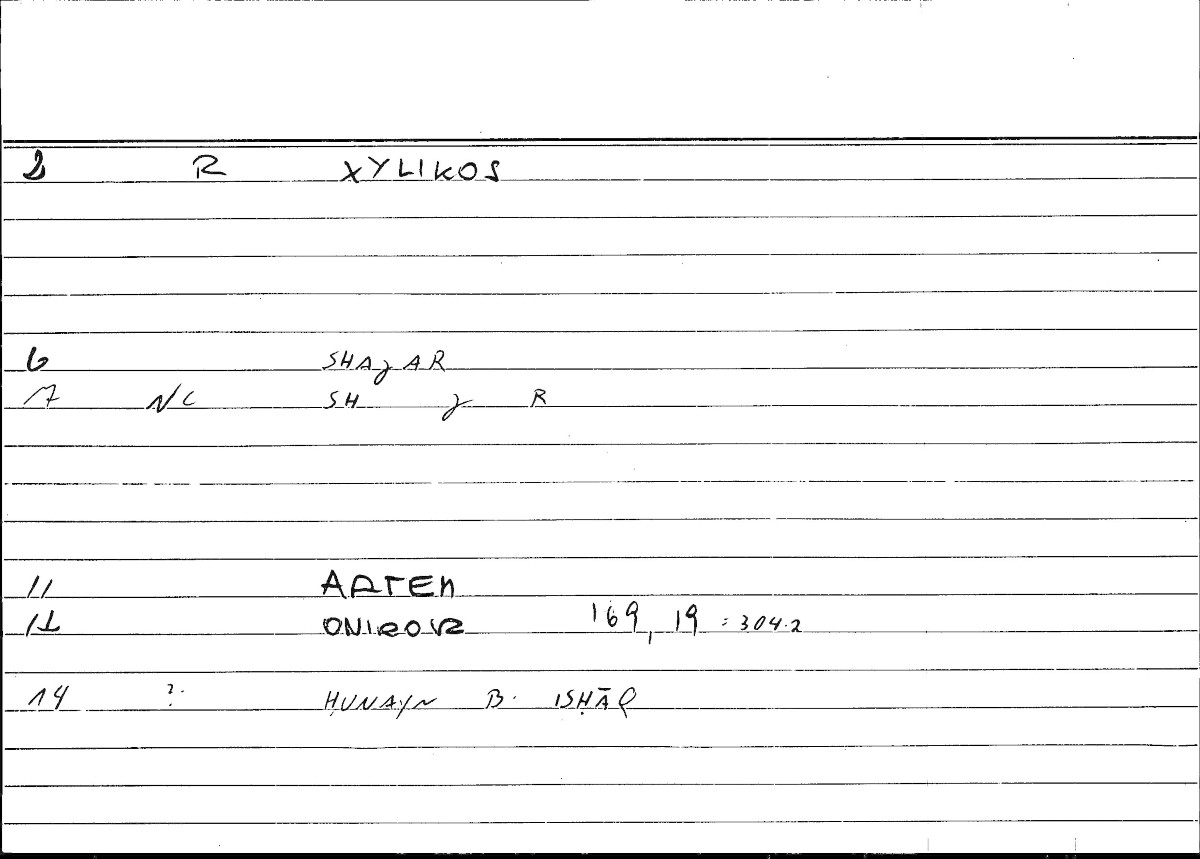 2 R XYLIKOS
6 SHAJAR
7 NC SH J R
11 ARTEM
12 ONIROCR 169, 19 = 304.2
14 ? ḤUNAYN B. ISḤĀQ